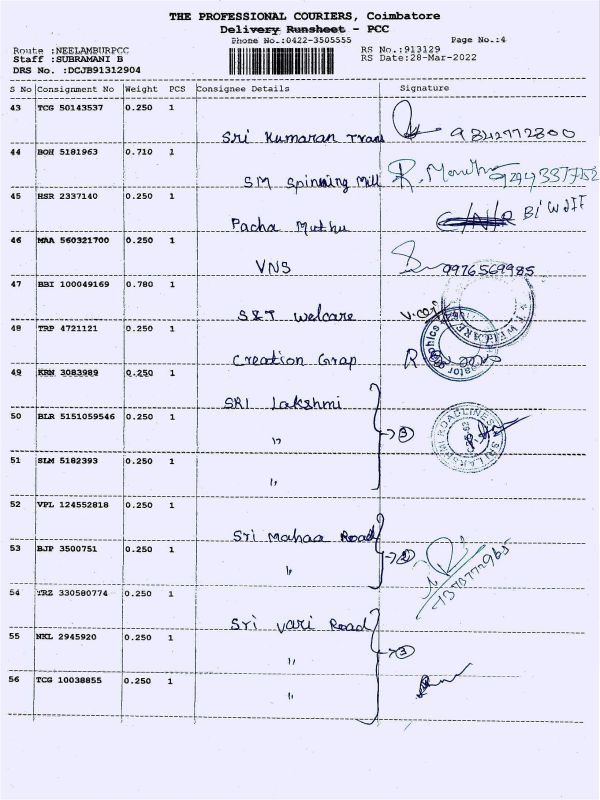 THE PROFESSIONAL COURIERS, Coimbatore
Delivery Runsheet - PCC
Phone No.:0422-3505555
Page No.:4
Route :NEELAMBURPCC
RS No.:913129
Staff :SUBRAMANI B
RS Date:28-Mar-2022
DRS No. :DCJB91312904
S No Consignment No Weight PCS Consignee Details Signature
43 TCG 50143537 0.250 1
Sri Kumaran Trans 9842772800
44 BOH 5181963 0.710 1
SM Spinning Mill
45 HSR 2337140 0.250 1
Pacha Muthu
46 MAA 560321700 0.250 1
VNS 9976569985
47 BBI 100049169 0.780 1
S&T Welcare
48 TRP 4721121 0.250 1
Creation Grap
49 KRN 3083989 0.250 1
SRI Lakshmi
50 BLR 5151059546 0.250 1
" 3
51 SLM 5182393 0.250 1
"
52 VPL 124552818 0.250 1
Sri Mahaa Road
53 BJP 3500751 0.250 1
" 2
54 TRZ 330580774 0.250 1
Sri Vari Road
55 NKL 2945920 0.250 1
" 3
56 TCG 10038855 0.250 1
"
SRI LAKSHMI ROADLINES